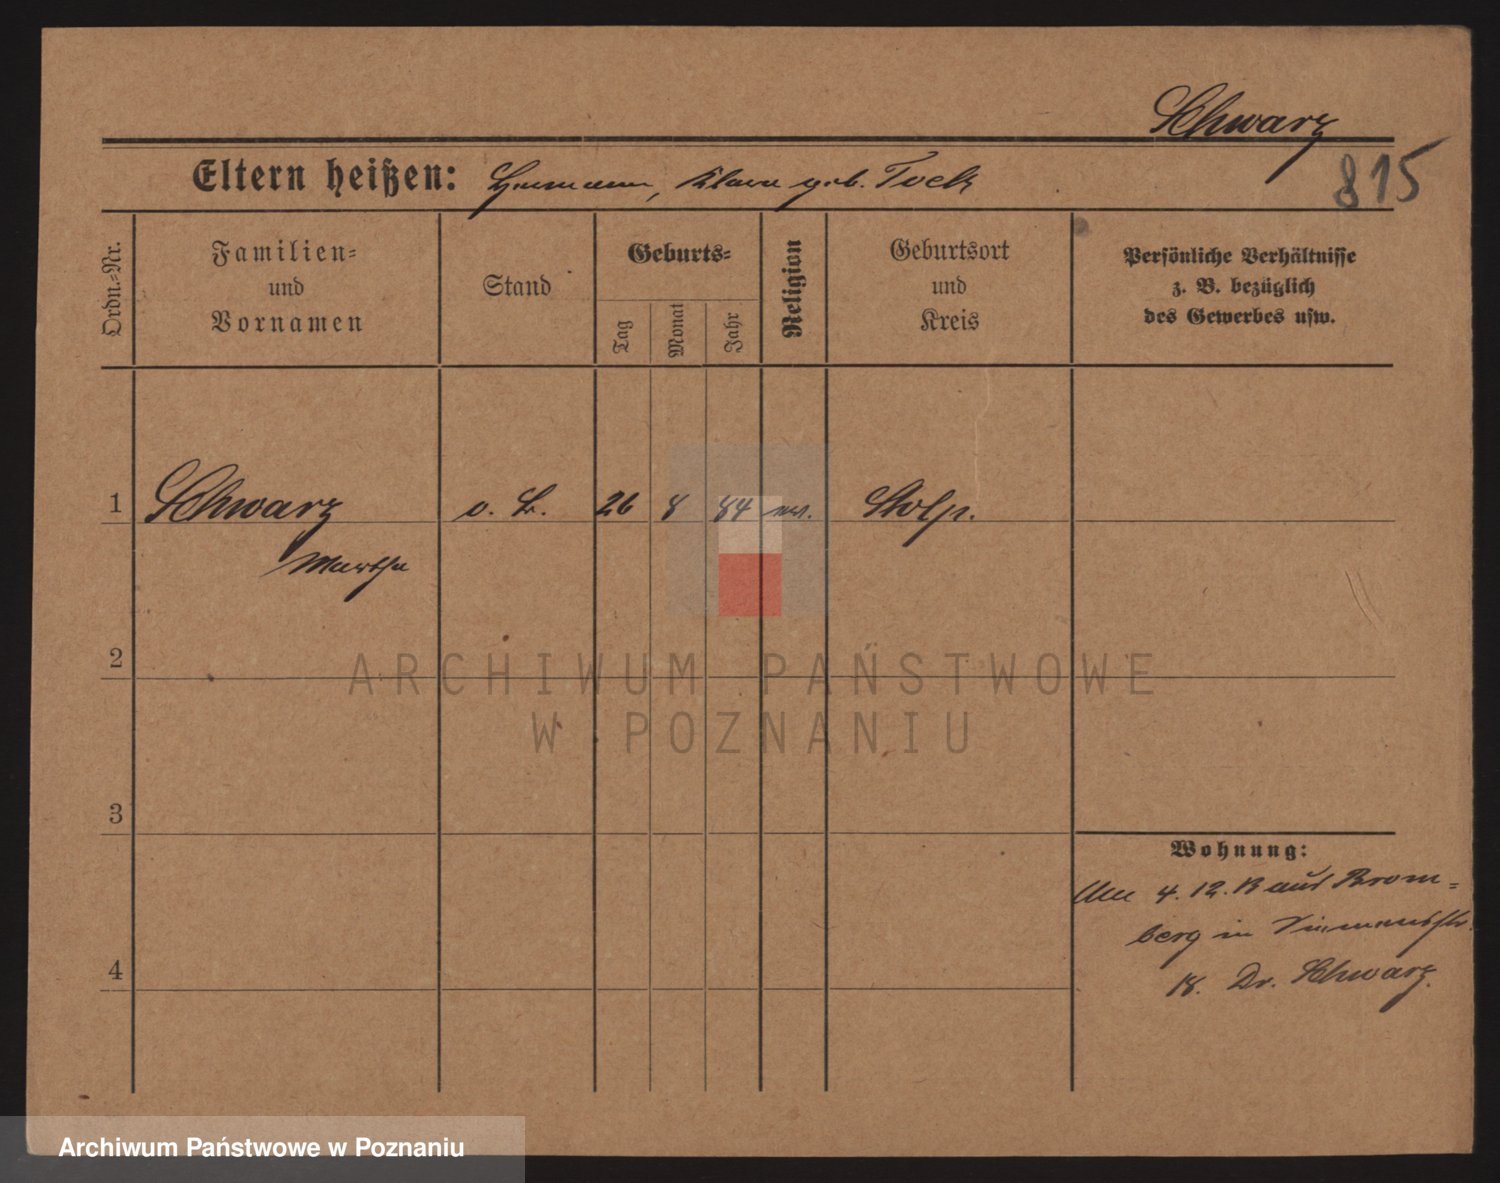 Schwarz
815
Eltern heißen: Hermann, Klara geb. Tock
Ordn.=Nr.
Familien=
und
Vornamen
Stand
Geburts=
Tag
Monat
Jahr
Religion
Geburtsort
und
Kreis
Persönliche Verhältnisse
z. B. bezüglich
des Gewerbes usw.
1 Schwarz o. B. 26 8 84 ev. Stolp.
Martha
2
ARCHIWUM PAŃSTWOWE
W POZNANIU
3
Wohnung:
Am 4. 12. 13 aus Brom=
berg in
4
18. Dr. Schwarz.
Archiwum Państwowe w Poznaniu